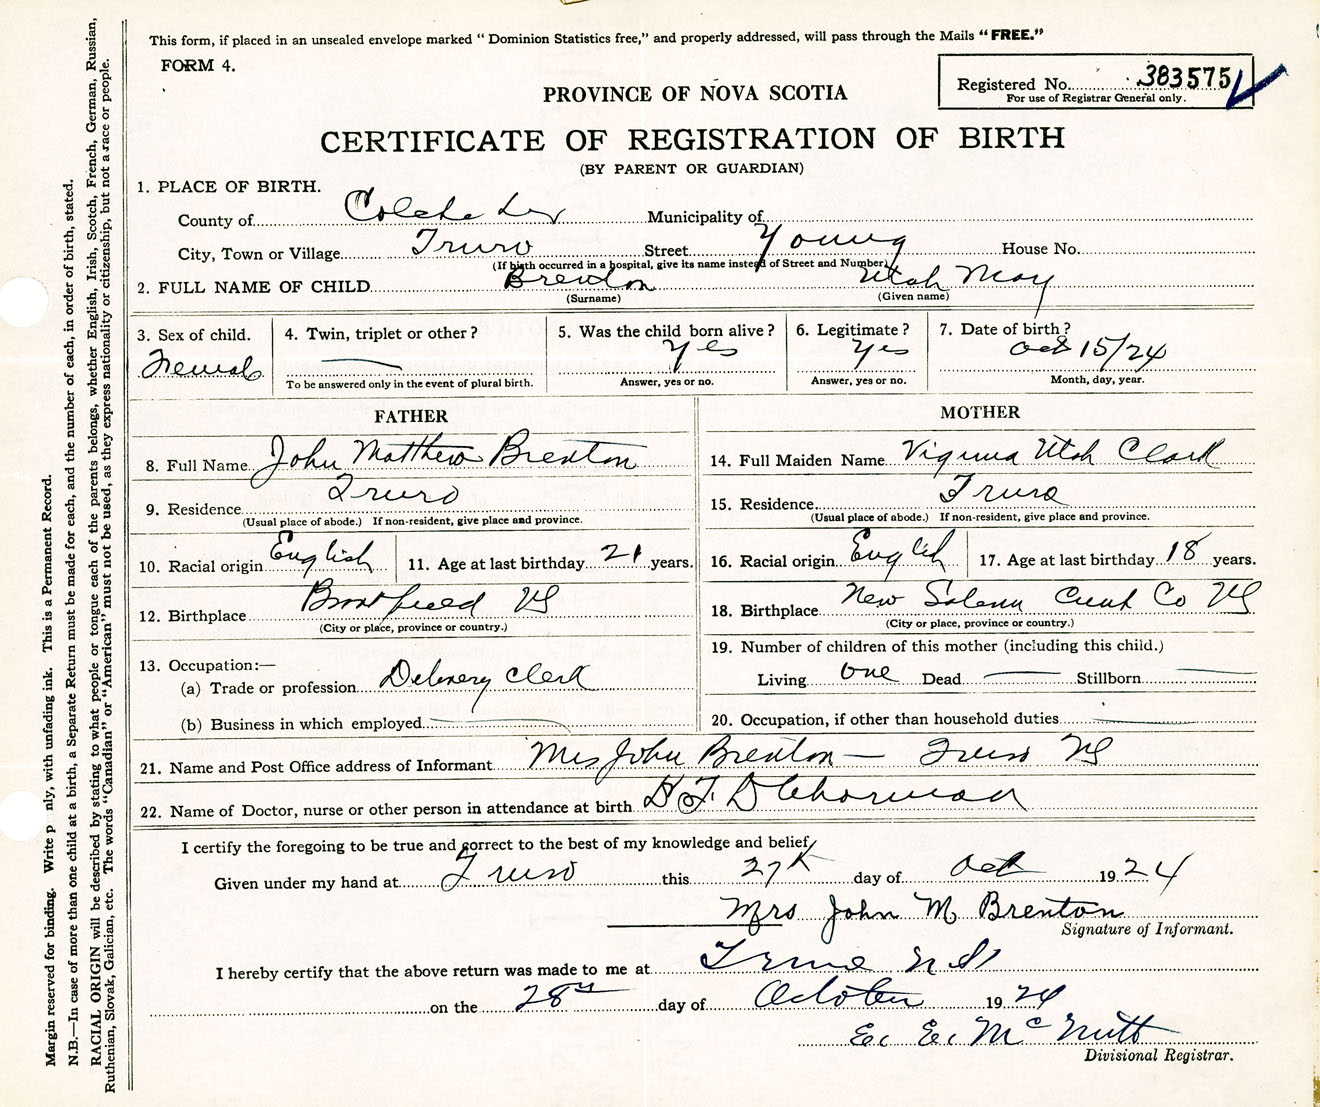 This form, if placed in an unsealed envelope marked “ Dominion Statistics free,” and properly addressed, will pass through the Mails “ FREE.”
FORM 4.
Registered No. 383575
For use of Registrar General only.
PROVINCE OF NOVA SCOTIA
CERTIFICATE OF REGISTRATION OF BIRTH
(BY PARENT OR GUARDIAN)
1. PLACE OF BIRTH.
County of Colchester Municipality of
City, Town or Village Truro Street Young House No.
(If birth occurred in a hospital, give its name instead of Street and Number)
2. FULL NAME OF CHILD Brenton Utah May
(Surname) (Given name)
3. Sex of child. 4. Twin, triplet or other? 5. Was the child born alive? 6. Legitimate? 7. Date of birth?
Femal — Yes Yes Oct 15/24
To be answered only in the event of plural birth. Answer, yes or no. Answer, yes or no. Month, day, year.
FATHER
8. Full Name John Matthew Brenton
9. Residence Truro
(Usual place of abode.) If non-resident, give place and province.
10. Racial origin English 11. Age at last birthday 21 years.
12. Birthplace NS
(City or place, province or country.)
13. Occupation:—
(a) Trade or profession Delivery Clerk
(b) Business in which employed —
MOTHER
14. Full Maiden Name Virginia Utah Clark
15. Residence Truro
(Usual place of abode.) If non-resident, give place and province.
16. Racial origin English 17. Age at last birthday 18 years.
18. Birthplace New Salem Cumb Co NS
(City or place, province or country.)
19. Number of children of this mother (including this child.)
Living one Dead — Stillborn —
20. Occupation, if other than household duties —
21. Name and Post Office address of Informant Mrs John Brenton — Truro NS
22. Name of Doctor, nurse or other person in attendance at birth
I certify the foregoing to be true and correct to the best of my knowledge and belief,
Given under my hand at Truro this 27th day of Oct 1924
Mrs John M Brenton
Signature of Informant.
I hereby certify that the above return was made to me at Truro N.S.
on the 28th day of October 1924
E. E. McNutt
Divisional Registrar.
Margin reserved for binding. Write p nly, with unfading ink. This is a Permanent Record.
N.B.—In case of more than one child at a birth, a Separate Return must be made for each, and the number of each, in order of birth, stated.
RACIAL ORIGIN will be described by stating to what people or tongue each of the parents belongs, whether English, Irish, Scotch, French, German, Russian,
Ruthenian, Slovak, Galician, etc. The words “Canadian” or “American” must not be used, as they express nationality or citizenship, but not a race or people.